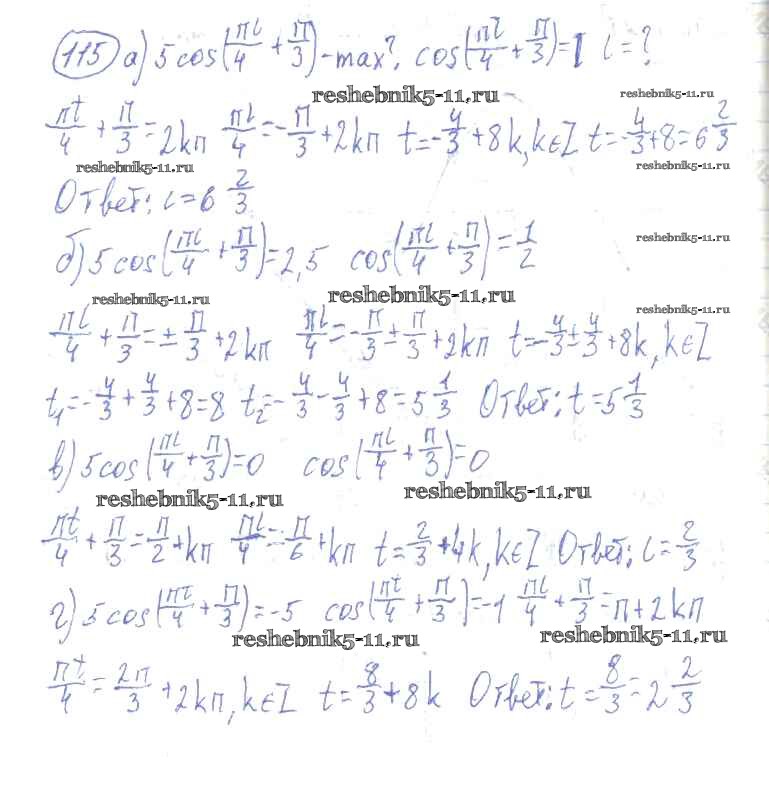 115 а) 5cos(πt/4 + π/3) - max?, cos(πt/4 + π/3) = 1 t = ?
reshebnik5-11.ru reshebnik5-11.ru
πt/4 + π/3 = 2kπ πt/4 = -π/3 + 2kπ t = -4/3 + 8k, k∈Z t = -4/3 + 8 = 6 2/3
reshebnik5-11.ru reshebnik5-11.ru
Ответ: t = 6 2/3
б) 5cos(πt/4 + π/3) = 2,5 cos(πt/4 + π/3) = 1/2 reshebnik5-11.ru
reshebnik5-11.ru reshebnik5-11.ru reshebnik5-11.ru
πt/4 + π/3 = ±π/3 + 2kπ πt/4 = -π/3 ± π/3 + 2kπ t = -4/3 ± 4/3 + 8k, k∈Z
t₁ = -4/3 + 4/3 + 8 = 8 t₂ = -4/3 - 4/3 + 8 = 5 1/3 Ответ: t = 5 1/3
в) 5cos(πt/4 + π/3) = 0 cos(πt/4 + π/3) = 0
reshebnik5-11.ru reshebnik5-11.ru
πt/4 + π/3 = π/2 + kπ πt/4 = π/6 + kπ t = 2/3 + 4k, k∈Z Ответ: t = 2/3
г) 5cos(πt/4 + π/3) = -5 cos(πt/4 + π/3) = -1 πt/4 + π/3 = π + 2kπ
reshebnik5-11.ru reshebnik5-11.ru
πt/4 = 2π/3 + 2kπ, k∈Z t = 8/3 + 8k Ответ: t = 8/3 = 2 2/3